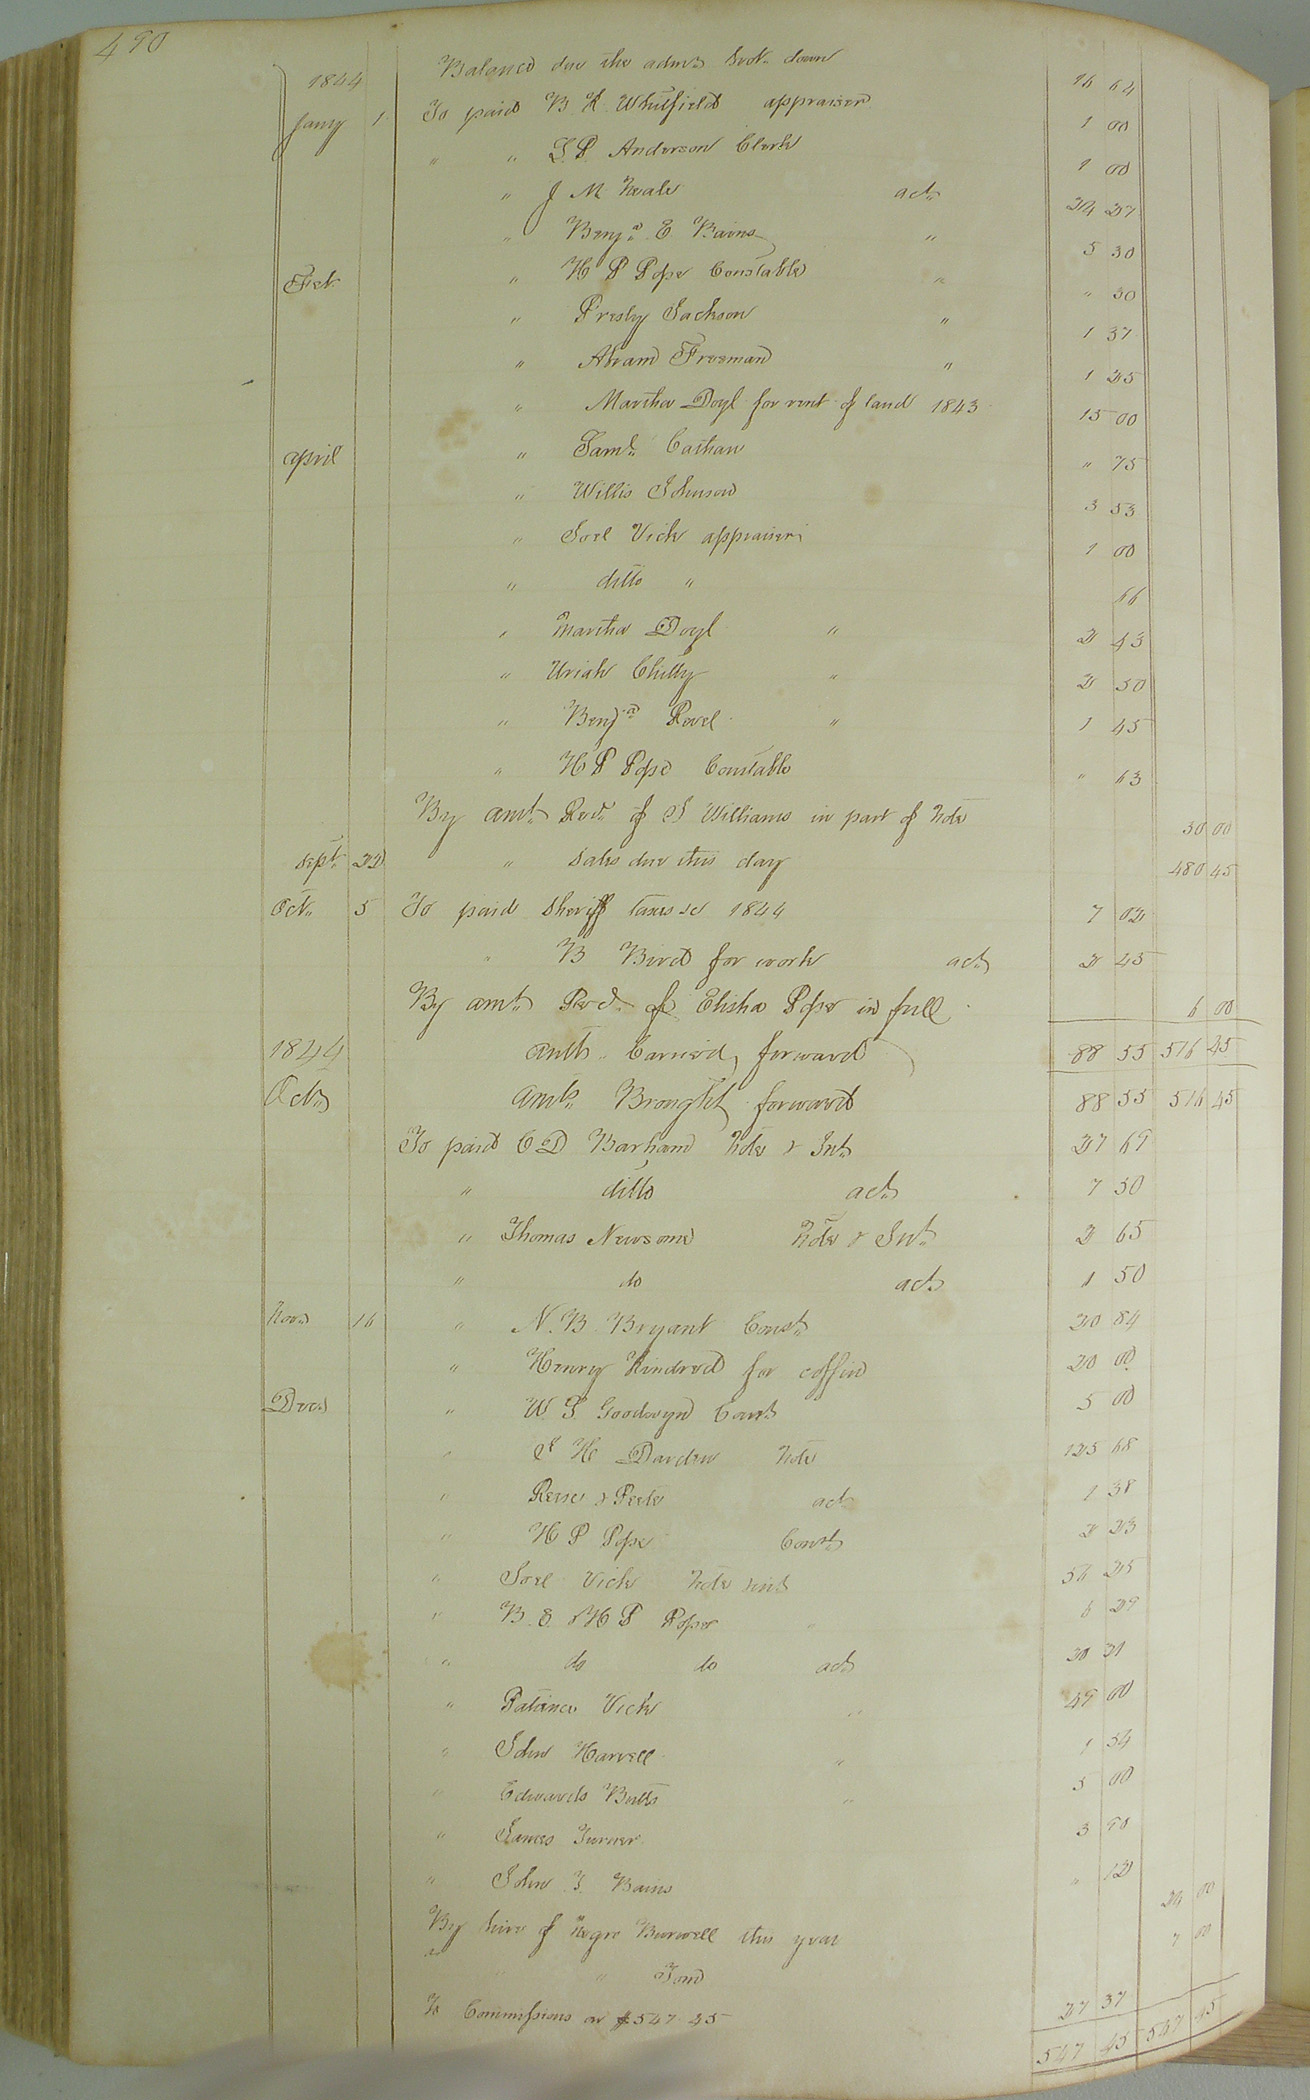 490
1844 Balance due the adms brot. down 16 64
Jany 1 To paid B K Whitfield appraiser 1 00
" " L. P. Anderson Clerk 1 00
" J M Neale act. 24 27
" Benja. E Bains " 5 30
Feb " H P Pope Constable " " 30
" Presly Jackson " 1 37
" Abram Freeman " 1 25
" Martha Doyl for rent of land 1843 15 00
april " Saml. Cathan " 75
" Willis Johnson 3 53
" Joel Vick appraiser 1 00
" ditto " 66
" Martha Doyl " 2 43
" Uriah Chitty " 2 50
" Benja Revel " 1 45
" H P Pope Constable " 63
By amt. Recd. of J Williams in part of Note 30 00
Sept. 22 " Sales due this day 480 45
Oct. 5 To paid Sheriff taxes &c 1844 7 02
" B Bird for work act. 2 45
By amt. Recd. of Elisha Pope in full 6 00
1844 amts. Carried forward 88 55 516 45
Octr. amts. Brought forward 88 55 516 45
To paid C D Barham Note & Int. 27 69
" ditto act. 7 50
" Thomas Newsome Note & Int. 2 65
" do act. 1 50
Novr. 16 " N. B. Bryant Const. 20 84
" Henry Kindred for coffin 20 00
Decr. " W. S. Goodwyn Const. 5 00
" H Darden Note 125 68
" Reese & Peete act. 1 38
" H P Pope Const. 2 23
" Joel Vick Note & int. 56 25
" B. E. & H P Pope " 6 29
" do do act. 30 31
" Patience Vick " 49 00
" John Harvell " 1 54
" Edwards Butts " 5 00
" James Turner 3 90
" John T. Bains " 12
By hire of Negro Burwell this year 24 00
" " Tom 7 00
To Commissions on $547.45 27 37
547 45 547 45